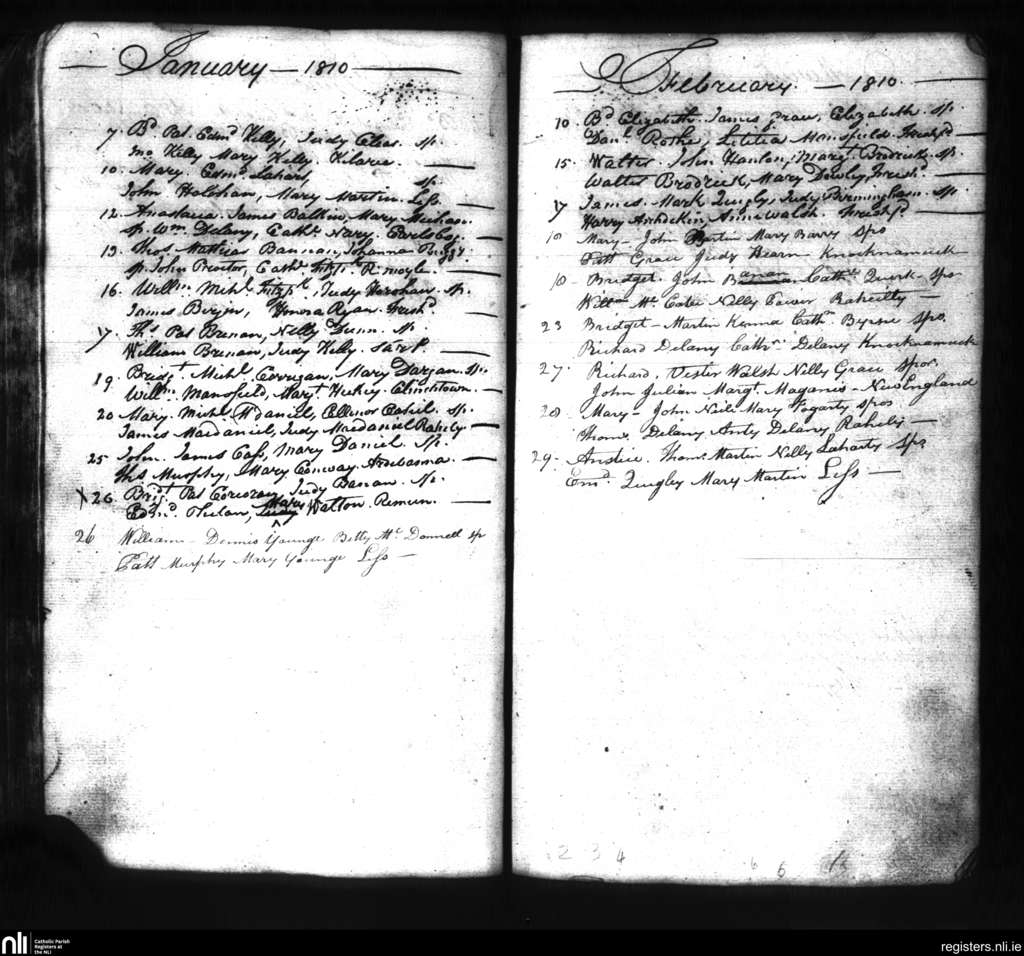 January — 1810
7. Bd Pat. Edmd Kelly, Judy Cleas. sp.
Jno Kelly Mary Kelly. Kilarie.
10. Mary. Edmd Laharty,
John Holohan, Mary Martin. Liss. sp.
12. Anastacia. James Balkin, Mary Meehan.
sp. Wm. Delany, Cathe. Nary.
13. Thos Mathias Bannan, Johanna
sp. John Proctor, Cathe. Fitzpk. Rimoyle.
16. Willm. Michl. Fitzpk, Judy Horohan. sp.
James Bergin, Honora Ryan. Freshd.
17. Ths Pat Brenan, Nelly Dunn. sp.
William Brenan, Judy Kelly.
19. Bridgt. Michl. Corrigan, Mary Dargan. sp.
Willm. Mansfield, Margt. Hickey. Clinstown.
20 Mary. Michl. McDaniel, Ellenor Cahil. sp.
James Macdaniel, Judy Macdaniel Rahely
25 John. James Cass, Mary Daniel. sp.
Ths Murphy, Mary Conway. Ardaloma.
X 26. Bridt Pat Corcoran, Judy Banan. sp.
Edmd. Phelan, Mary Walton. Remun.
26 William — Dennis Younge Betty McDonnell sp
Patt Murphy Mary Younge Liss —
February. — 1810.
10. Bd Elizabeth. James Grace, Elizabeth. sp.
Danl. Rothe, Letitia Mansfield. Freshfd
15. Walter. John Hanlon, Mary Brodrick. sp.
Walter Brodrick, Mary Dowley, Fresh.
17 James. Mark Quigly, Judy Birmingham. sp
Harry Anne Walsh. Freshfd
18 Mary — John Martin Mary Barry Spo
Patt Grace Judy Hearn Knocknamuck
18 Bridget. John Banan Cathe. Quirk — Spo
Willm Mc Nelly Power Raheilly —
23 Bridget — Martin Kenna Cathn. Byrne Spo.
Richard Delany Cathn. Delany Knocknamuck
27. Richard. Vester Walsh Nelly Grace Spor.
John Julian Margt. Maganis — New England
28. Mary — John Neile Mary Fogarty Spos
Thom. Delany Anty Delany Rahelly —
29. Anstie. Thoms Martin Nelly Laharty Spo
Emd. Quigley Mary Martin Liss —
2 3 4
6 6
nli
Catholic Parish
Registers at
the NLI
registers.nli.ie